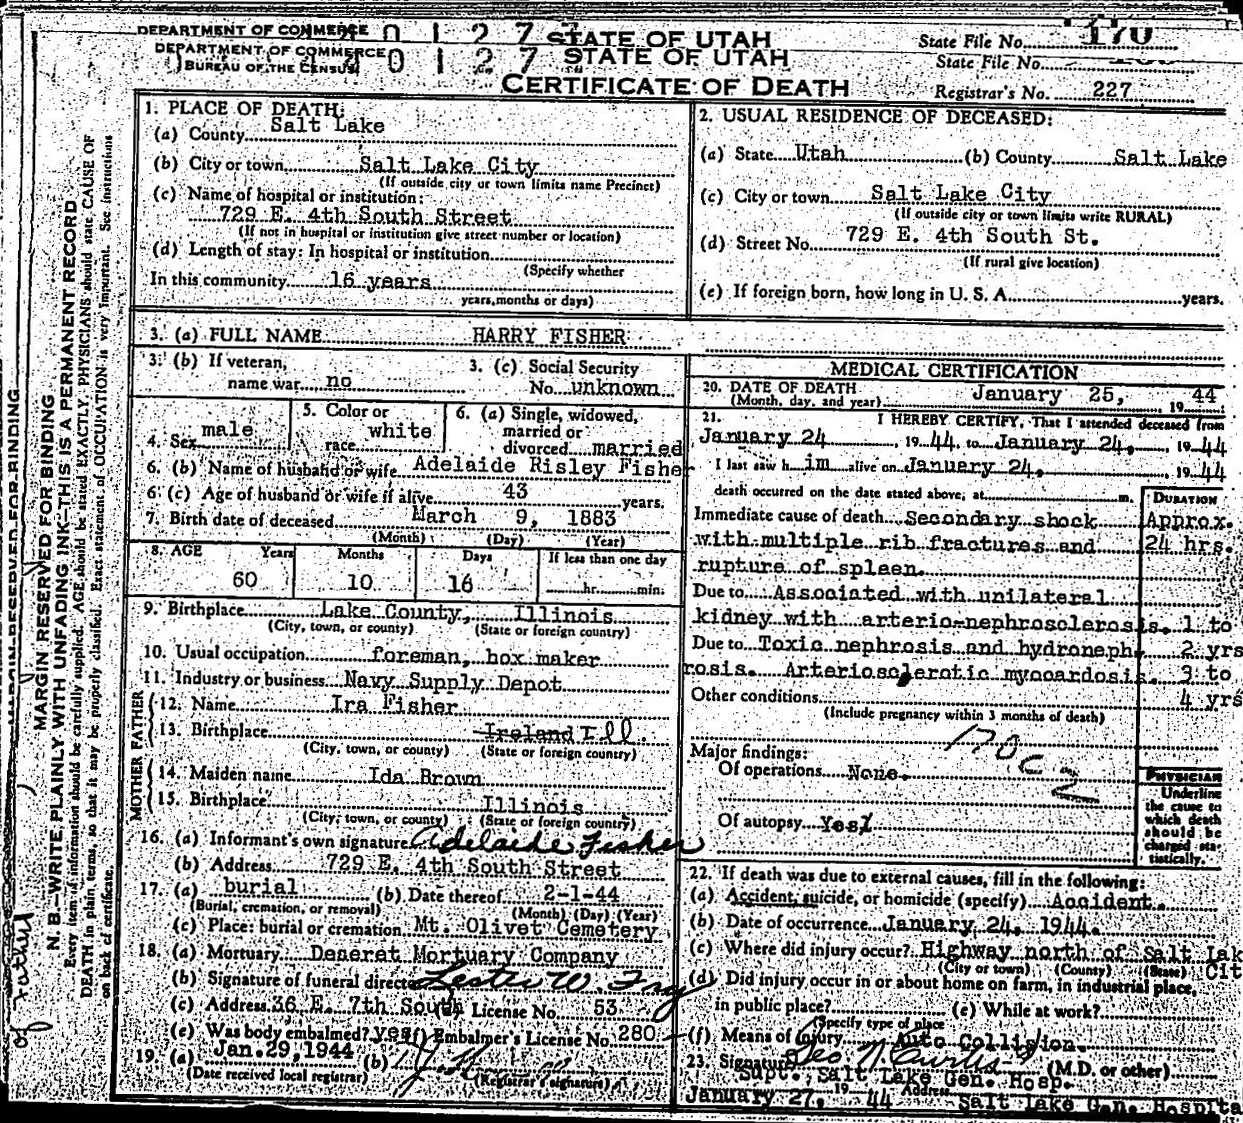 DEPARTMENT OF COMMERCE 0 1 2 7 STATE OF UTAH State File No. 170
DEPARTMENT OF COMMERCE 0 1 2 7 STATE OF UTAH State File No.
BUREAU OF THE CENSUS
CERTIFICATE OF DEATH Registrar's No. 227
1. PLACE OF DEATH:
(a) County Salt Lake
(b) City or town Salt Lake City
(If outside city or town limits name Precinct)
(c) Name of hospital or institution:
729 E. 4th South Street
(If not in hospital or institution give street number or location)
(d) Length of stay: In hospital or institution
(Specify whether
In this community 16 years
years, months or days)
2. USUAL RESIDENCE OF DECEASED:
(a) State Utah (b) County Salt Lake
(c) City or town Salt Lake City
(If outside city or town limits write RURAL)
(d) Street No. 729 E. 4th South St.
(If rural give location)
(e) If foreign born, how long in U. S. A. years.
3. (a) FULL NAME HARRY FISHER
3. (b) If veteran,
name war no
3. (c) Social Security
No. unknown
4. Sex male
5. Color or
race white
6. (a) Single, widowed,
married or
divorced married
6. (b) Name of husband or wife Adelaide Risley Fisher
6. (c) Age of husband or wife if alive 43 years.
7. Birth date of deceased March 9, 1883
(Month) (Day) (Year)
8. AGE Years Months Days If less than one day
60 10 16 hr. min.
9. Birthplace Lake County, Illinois
(City, town, or county) (State or foreign country)
10. Usual occupation foreman, box maker
11. Industry or business Navy Supply Depot
FATHER
12. Name Ira Fisher
13. Birthplace Ireland Ill.
(City, town, or county) (State or foreign country)
MOTHER
14. Maiden name Ida Brown
15. Birthplace Illinois
(City, town, or county) (State or foreign country)
16. (a) Informant's own signature Adelaide Fisher
(b) Address 729 E. 4th South Street
17. (a) burial (b) Date thereof 2-1-44
(Burial, cremation, or removal) (Month) (Day) (Year)
(c) Place: burial or cremation Mt. Olivet Cemetery
18. (a) Mortuary Deseret Mortuary Company
(b) Signature of funeral director Lester W.
(c) Address 36 E. 7th South License No. 53
(e) Was body embalmed? yes (f) Embalmer's License No. 280
19. (a) Jan. 29, 1944 (b)
(Date received local registrar) (Registrar's signature)
MEDICAL CERTIFICATION
20. DATE OF DEATH
(Month, day, and year) January 25, 19 44
21. I HEREBY CERTIFY, That I attended deceased from
January 24 19 44, to January 24, 19 44
I last saw h im alive on January 24, 19 44
death occurred on the date stated above, at m. DURATION
Immediate cause of death Secondary shock Approx.
with multiple rib fractures and 24 hrs.
rupture of spleen.
Due to Associated with unilateral
kidney with arterio-nephrosclerosis. 1 to
Due to Toxic nephrosis and hydroneph- 2 yrs
rosis. Arteriosclerotic myocardosis. 3 to
Other conditions 4 yrs
(Include pregnancy within 3 months of death)
170c
2
Major findings:
Of operations None.
Of autopsy Yes
PHYSICIAN
Underline
the cause to
which death
should be
charged sta-
tistically.
22. If death was due to external causes, fill in the following:
(a) Accident, suicide, or homicide (specify) Accident.
(b) Date of occurrence January 24, 1944.
(c) Where did injury occur? Highway north of Salt Lak
(City or town) (County) (State) Cit
(d) Did injury occur in or about home on farm, in industrial place,
in public place? (e) While at work?
(Specify type of place
(f) Means of injury Auto Collision.
23. Signature Geo N Curtis (M.D. or other)
Supt., Salt Lake Gen. Hosp.
January 27, 19 44 Address Salt Lake Gen. Hospita
MARGIN RESERVED FOR BINDING
MARGIN RESERVED FOR BINDING
N. B.—WRITE PLAINLY WITH UNFADING INK—THIS IS A PERMANENT RECORD
Every item of information should be carefully supplied. AGE should be stated EXACTLY. PHYSICIANS should state CAUSE OF
DEATH in plain terms, so that it may be properly classified. Exact statement of OCCUPATION is very important. See instructions
on back of certificate.
of Father